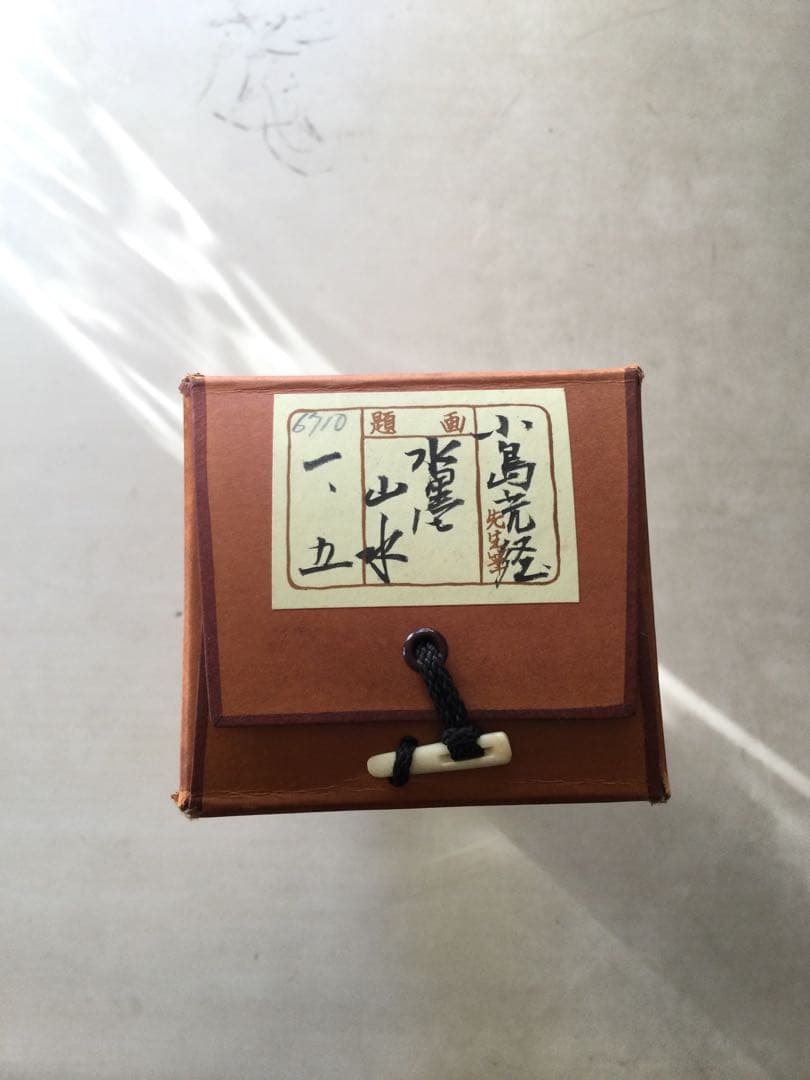 小島
先生筆
画題
水墨
山水
6710
一、五